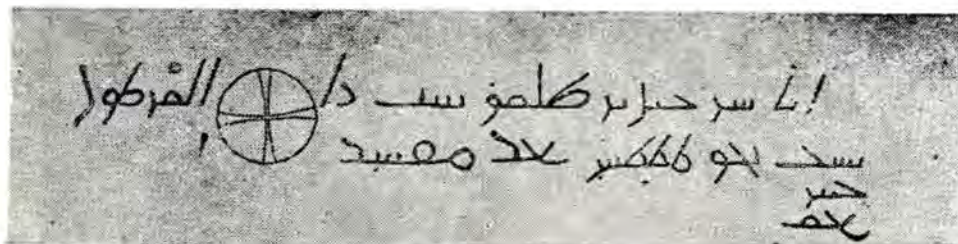 انا شرحيل بر ظلمو بنيت ذا المرطول
سنت بعد مفسد
خيبر
بعم